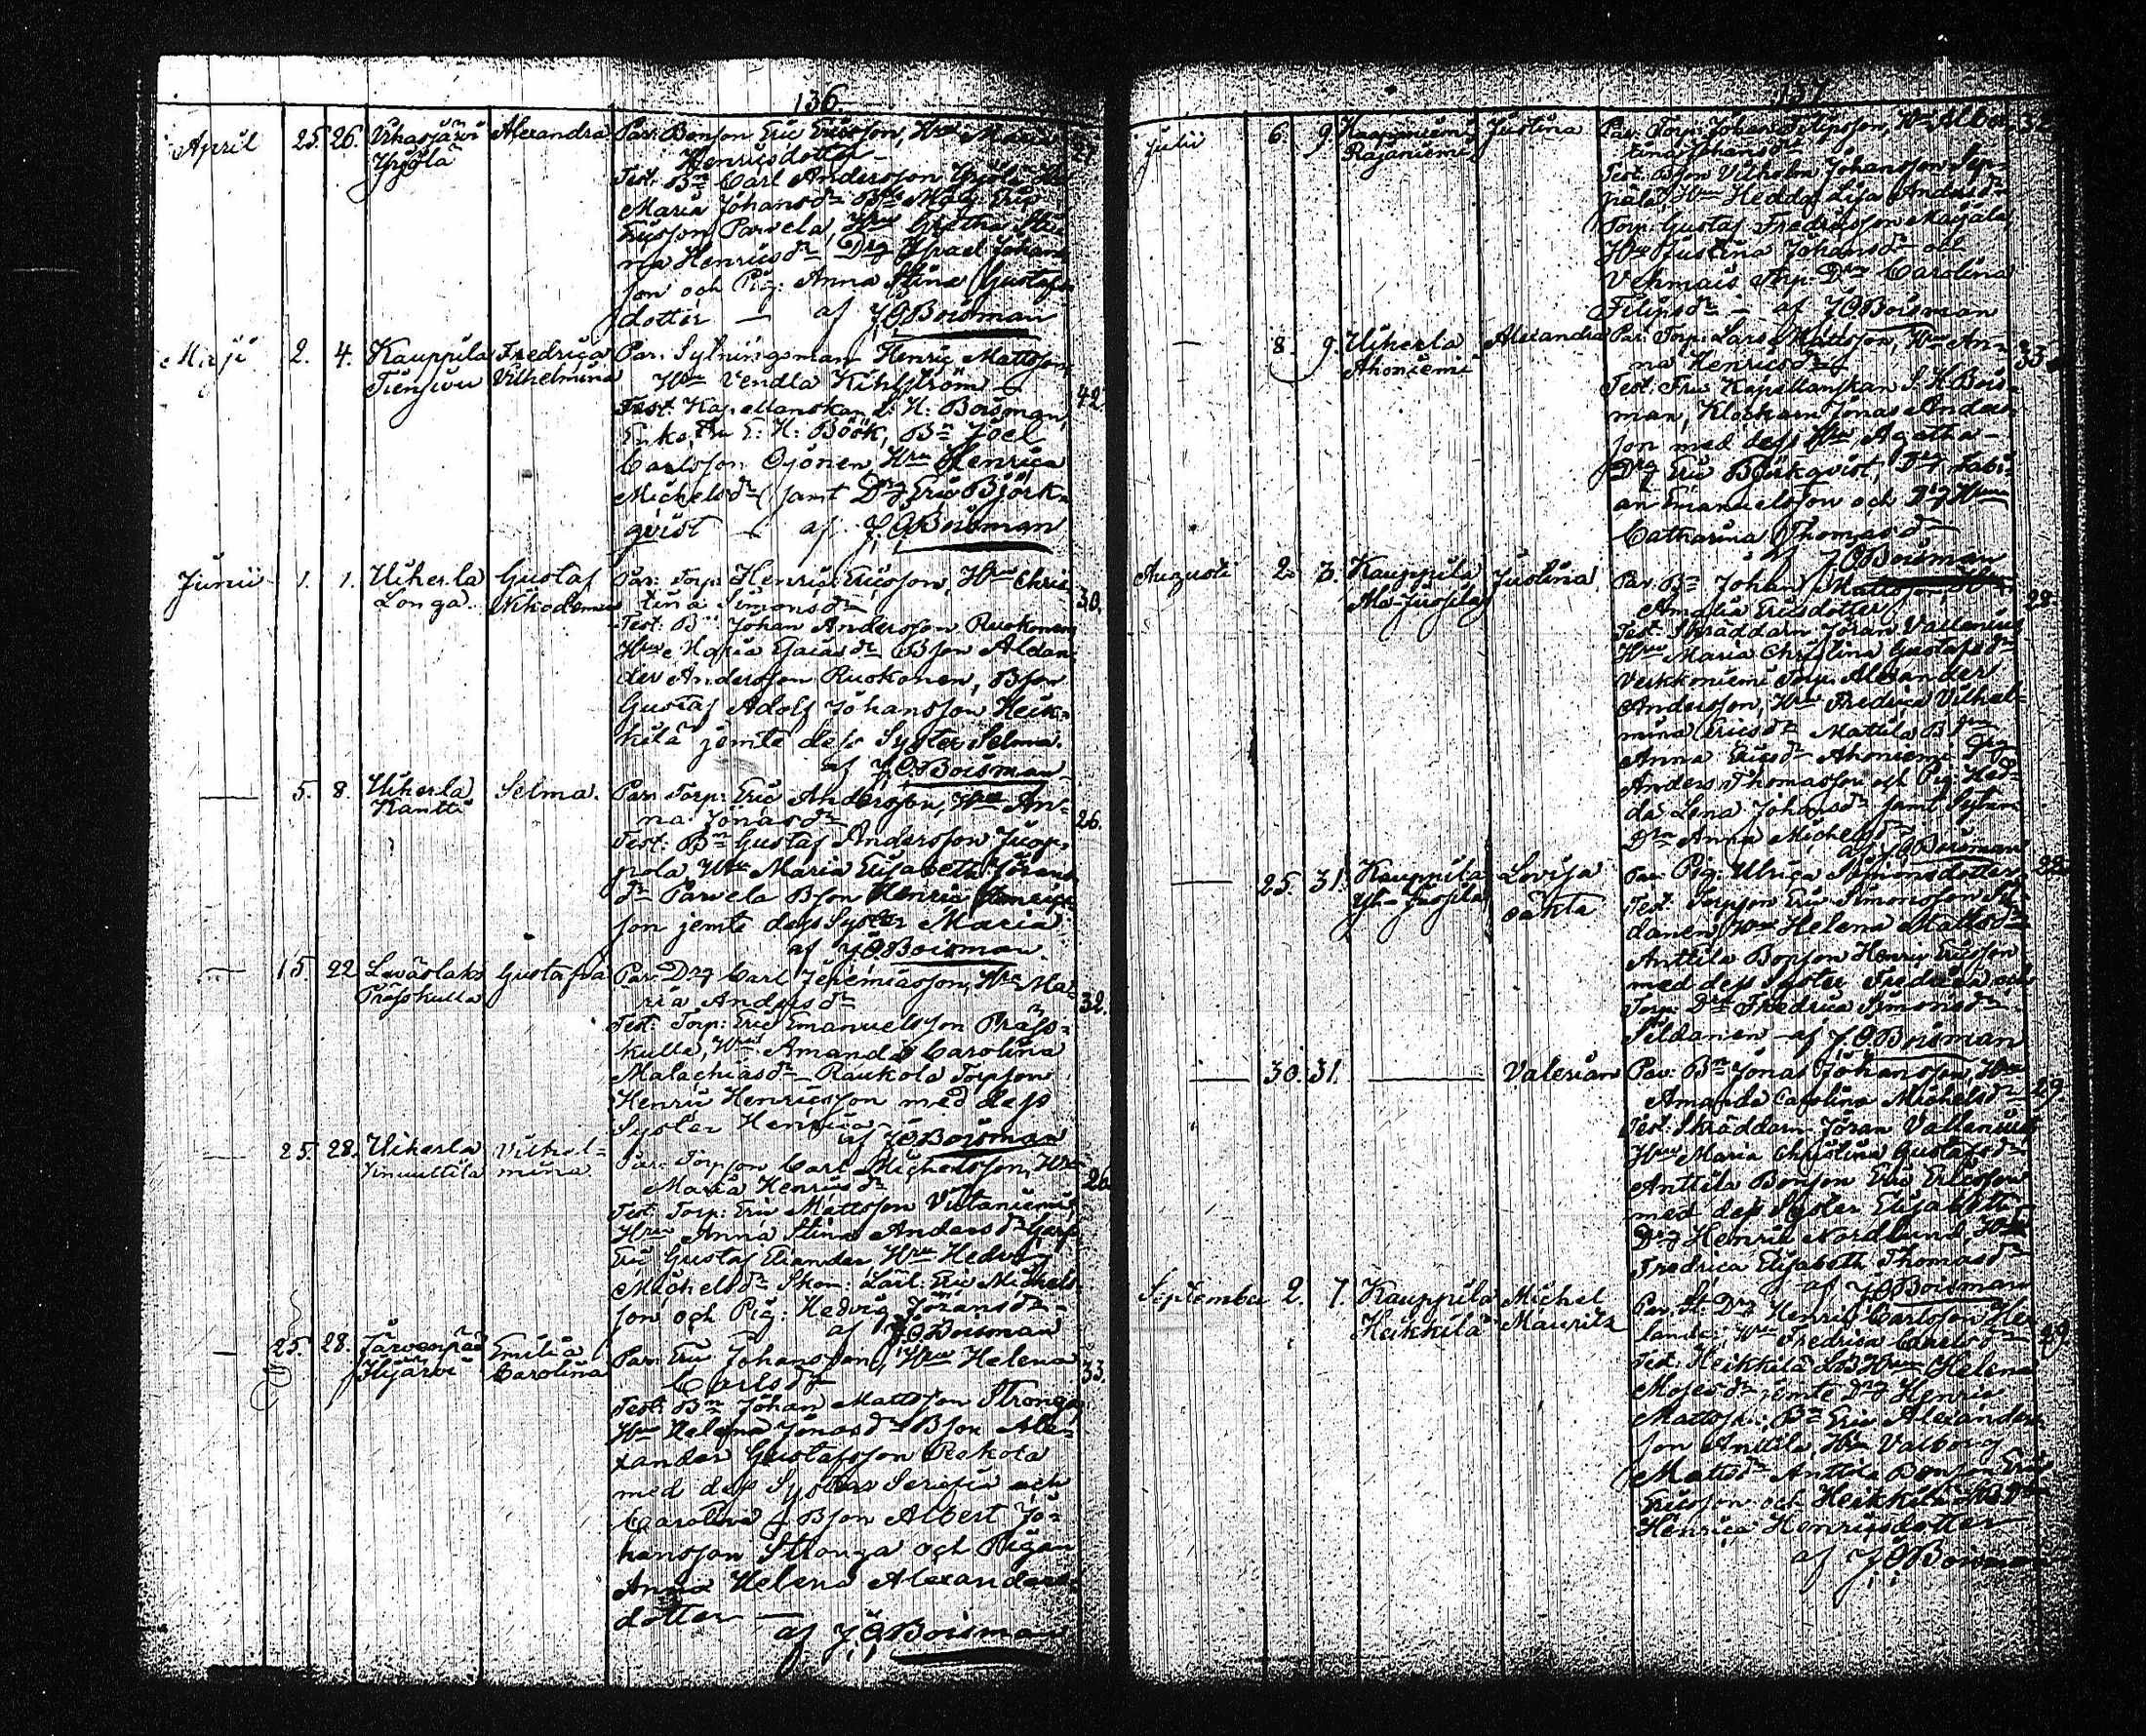 136.
April 25. 26. Vihasjärvi Alexandra Par. Bonson Eric Ericsson, Hru Maria
Yrjölä Henricsdotter
27.
Test. Bn Carl Andersson Yrjölä
Maria Johansdr
Ericsson Parvela, Hru Gretha Sti
na Henricsdr Drg Israel Johans
son och Pig: Anna Stina Gustafs
dotter — af J.O.Boisman
Maji 2. 4. Kauppila Fredrica Par. Sytningsman Henric Mattsson,
Tiensuu Vilhelmina Hru Vendla Kihlström
42.
Test. Kapellanskan S. H. Boisman,
Enke Fru E. H. Böök, Bn Joel
Carlsson Ojonen, Hru Henrica
Michelsdr samt Drg Eric Björk-
qvist — af J.O.Boisman
Junii 1. 1. Uiherla Gustaf Par. Torp. Henric Ericsson, Hru Chris-
Longa. Nikodemus tina Simonsdr
30.
Test. Bn Johan Andersson Ruokonen
Hru Maria Esaiasdr Bson Alexan-
der Andersson Ruokonen, Bson
Gustaf Adolf Johansson Heik-
kilä jemte dess Syster Selma.
af J.O.Boisman
— 5. 8. Uiherla Selma. Par. Torp: Eric Andersson, Hru An-
Kantti na Jonasdr
26.
Test: Bn Gustaf Andersson Juop-
pola, Hru Maria Elisabeth Jörans
dr Parvela Bson Henric Henrics-
son jemte dess Syster Maria
af J.O.Boisman.
— 15. 22 Leväslaks Gustafva Par. Drg Carl Jeremiasson, Hru Ma-
Prässkulla ria Andersdr
32.
Test: Torp: Eric Emanuelsson Präss-
kulla, Hru Amanda Carolina
Malachiasdr Raukola Torpson
Henric Henricsson med dess
Syster Henrica
af J.O.Boisman
— 25. 28. Uiherla Vilhel-
Simuntila mina
Par. Torpson Carl Michelsson, Hru
Maria Henricsdr
26
Test. Torp: Eric Mattsson Viitaniemi
Hru Anna Stina Andersdr
Eric Gustaf Eliander, Hru Hedvig
Michelsdr Skom. Lärl. Eric Michels-
son och Pig: Hedvig Jöransdr
af J.O.Boisman
— 25. 28. Järvenpää Emilia
Iljärvi Carolina
Par: Eric Johansson, Hru Helena
Carlsdr
33.
Test. Bn Johan Mattsson Stronga,
Hru Helena Jonasdr Bson Ale-
xander Gustafsson Rekola
med dess Systrar Serafia och
Carolina, Bson Albert Jo-
hansson Stronga och Pigan
Anna Helena Alexanders-
dotter —
af J.O.Boisman
137
Julii 6 9. Haapaniemi Justina Par. Torp: Johan Filipsson, Hru Alber-
Rajaniemi tina Johansdr
Test. Bson Vilhelm Johansson Sep-
pälä, Hru Hedda Lisa Andersdr
Torp. Gustaf Fredricsson Marjala,
Hru Justina Johansdr och
Vehmais Torp. Drn Carolina
Filipsdr — af J.O.Boisman
— 8. 9. Uiherla Alexandra Par. Torp: Lars Mattsson, Hru An-
Ahoniemi na Henricsdr
33
Test. Fru Kapellanskan S. H. Bois-
man, Klockarn Jonas Anders-
son med dess Hru Agatha
Drg Eric Björkqvist, Drg Fabi-
an Emanuelsson och
Catharina Thomasdr
af J.O.Boisman
Augusti 2. 3. Kauppila Justina Par. Bn Johan Mattsson, Hru
Ala-Juosila Amalia Ericsdotter
28
Test. Skräddarn Jöran Vallenius
Hru Maria Christina Gustafsdr
Veikkoniemi Torp. Alexander
Andersson, Hru Fredica Vilhel-
mina Ericsdr Mattila
Anna Ericsdr Ahoniemi Drg
Anders Thomasson och Pig. Hed-
da Lena Johansdr samt
Drn Anna Michelsdr
af J.O.Boisman
— 25. 31. Kauppila Lovisa Par. Pig: Ulrica Simonsdotter
Yli-Juosila oäkta
22
Test. Torpson Eric Simonsson Sil-
danen Hru Helena Mattsdr
Anttila Bonson Henric Ericsson
med dess Syster Fredrica och
Torp: Drn Fredrica Simonsdr
Sildanen — af J.O.Boisman
— 30. 31. — Valerian Par. Bn Jonas Johansson, Hru
Amanda Carolina Michelsdr
29.
Test. Skräddarn Jöran Vallenius
Hru Maria Christina Gustafsdr
Anttila Bonson Eric Ericsson
med dess Syster Elisabeth
Drg Henric Nordlund, Hru
Fredrica Elisabeth Thomasdr
af J.O.Boisman
September 2. 7. Kauppila Michel
Heikkilä Maurits
Par. St. Drg Henric Carlsson Hel
lande, Hru Fredrica Carlsdr
29.
Test. Heikkilä Hru Helena
Mosesdr jemte Drg Henric
Mattsson, Bn Eric Alexanders-
son Anttila Hru Valborg
Mattsdr Anttila Bonson Eric
Ericsson och Heikkilä
Henrica Henricsdotter
af J.O.Boisman